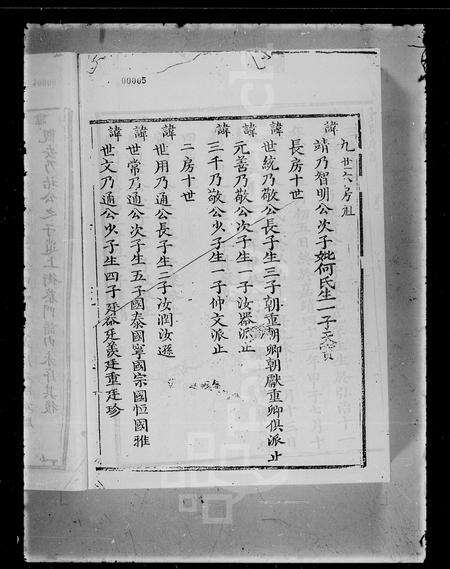 00005
九世六房祖
諱靖乃智明公次子妣何氏生一子天實
長房十世
諱世統乃敬公長子生三子朝重朝卿朝獻重卿俱派止
諱元善乃敬公次子生一子汝器派止
諱三千乃敬公少子生一子仲文派止
二房十世
諱世用乃通公長子生二子汝潤汝遜
諱世常乃通公次子生五子國泰國寧國宗國恒國雅
諱世文乃通公少子生四子廷裕廷羨廷重廷珍